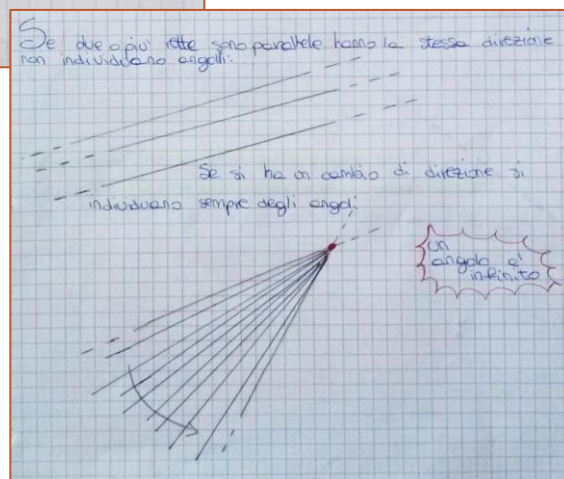 Se due o più rette sono parallele hanno la stessa direzione
non individuano angoli.
Se si ha un cambio di direzione si
individuano sempre degli angoli
un
angolo e'
infinito